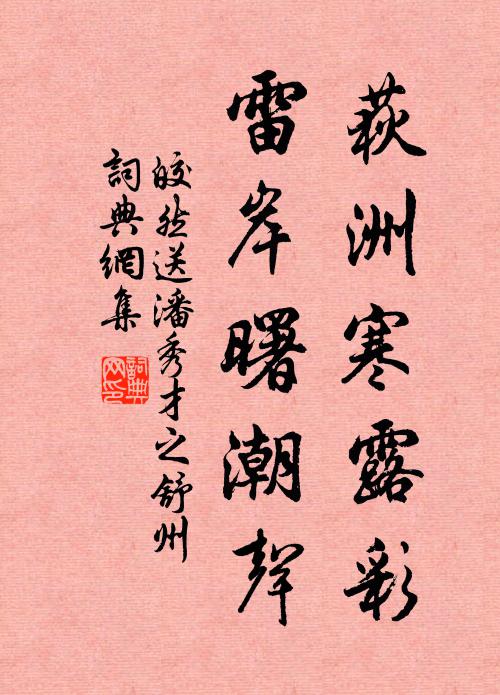 荻洲寒露彩
雷岸曙潮聲
皎然送潘秀才之舒州
詞典網集
詞典網印